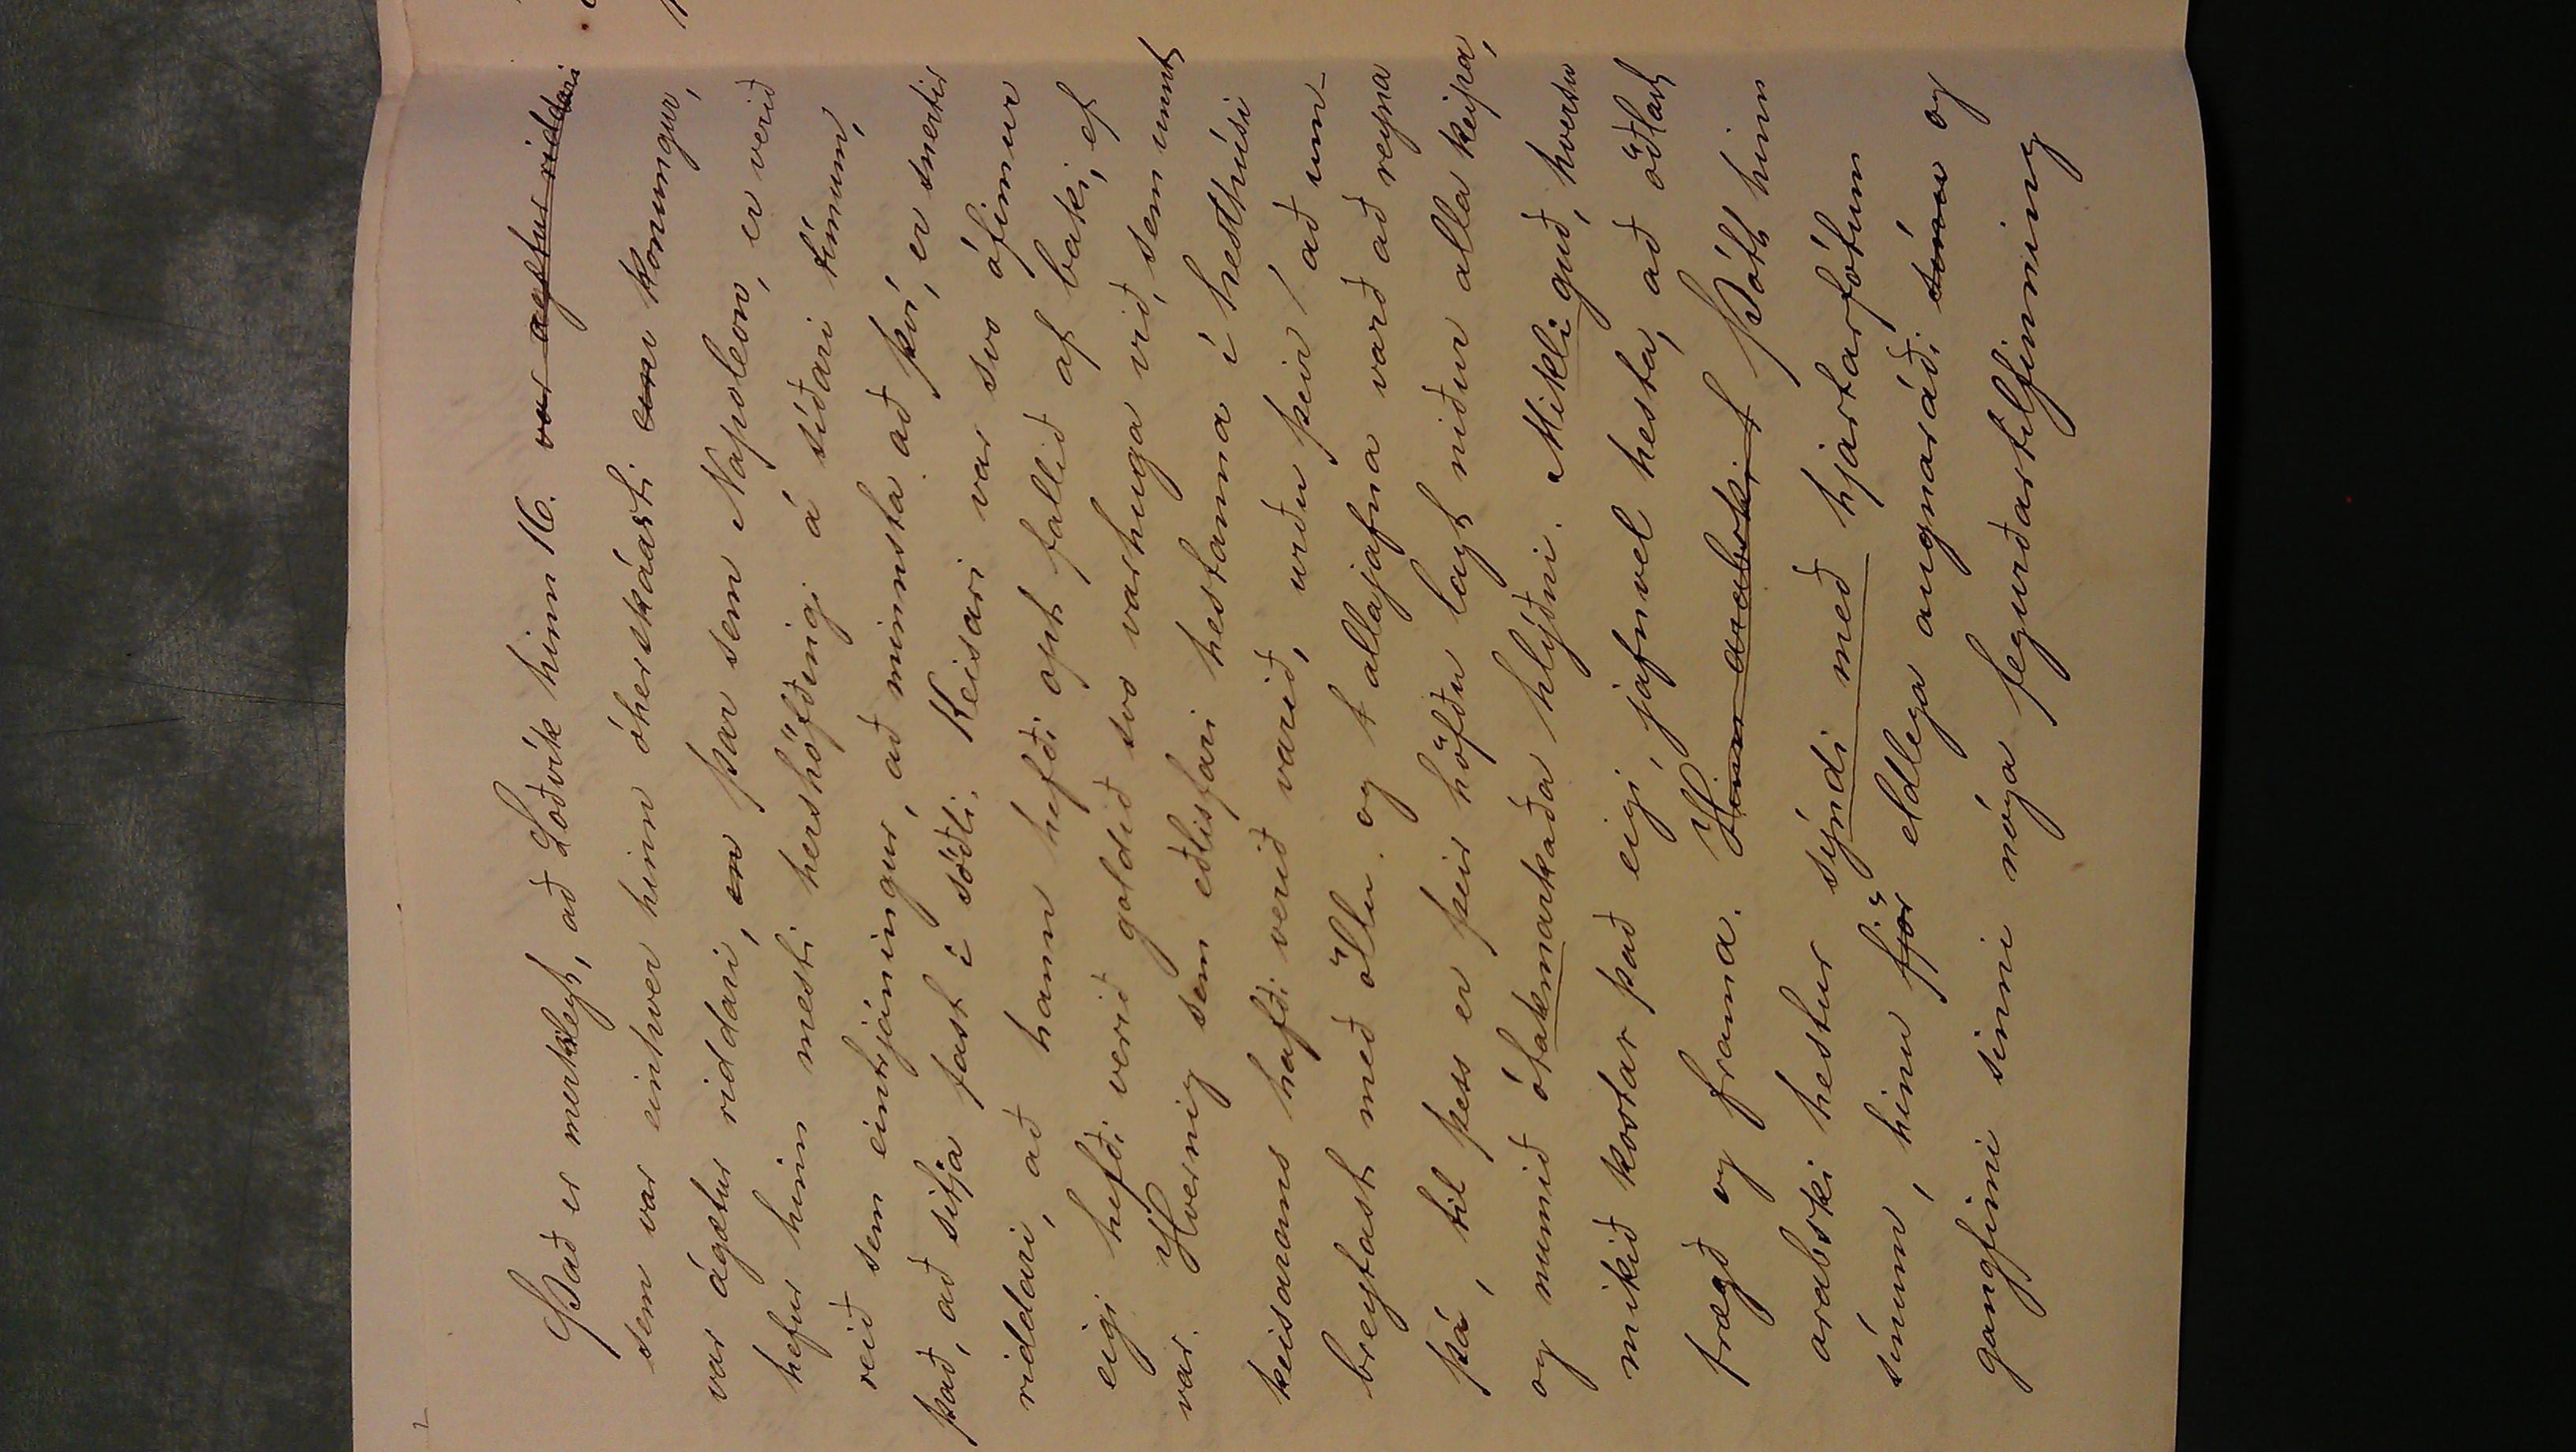 Það er merkilegt, að Loðvík hinn 16. var ágætur riddari
sem var einhver hinn óherskáasti konungur,
var ágætur riddari, en þar sem Napoleon, er verið
hefur hinn mesti hershöfðingi á síðari tímum,
reið sem eintrjáningur, að minnsta að því, er snertir
það, að sitja fast í söðli. Keisari var svo ófimur
riddari, að hann hefði opt fallið af baki, ef
eigi hefði verið goldið svo varhuga við, sem unnt
var. Hvernig sem eðlisfari hestanna í hesthúsi
keisarans hafði verið varið, urðu þeir að um-
breytast með öllu og allajafna varð að reyna
þá, til þess er þeir höfðu lagt niður alla keipa,
og numið ótakmarkaða hlýðni. Mikli guð, hversu
mikið kostar það eigi, jafnvel hesta, að öðlast
frægð og frama. Hinn arabski Þótt hinn
arabski hestur sýndi með hjartarfótum
sínum, hinu fjör eldlega augnaráði sínu og
gangfimi sinni nóga fegurðartilfinning